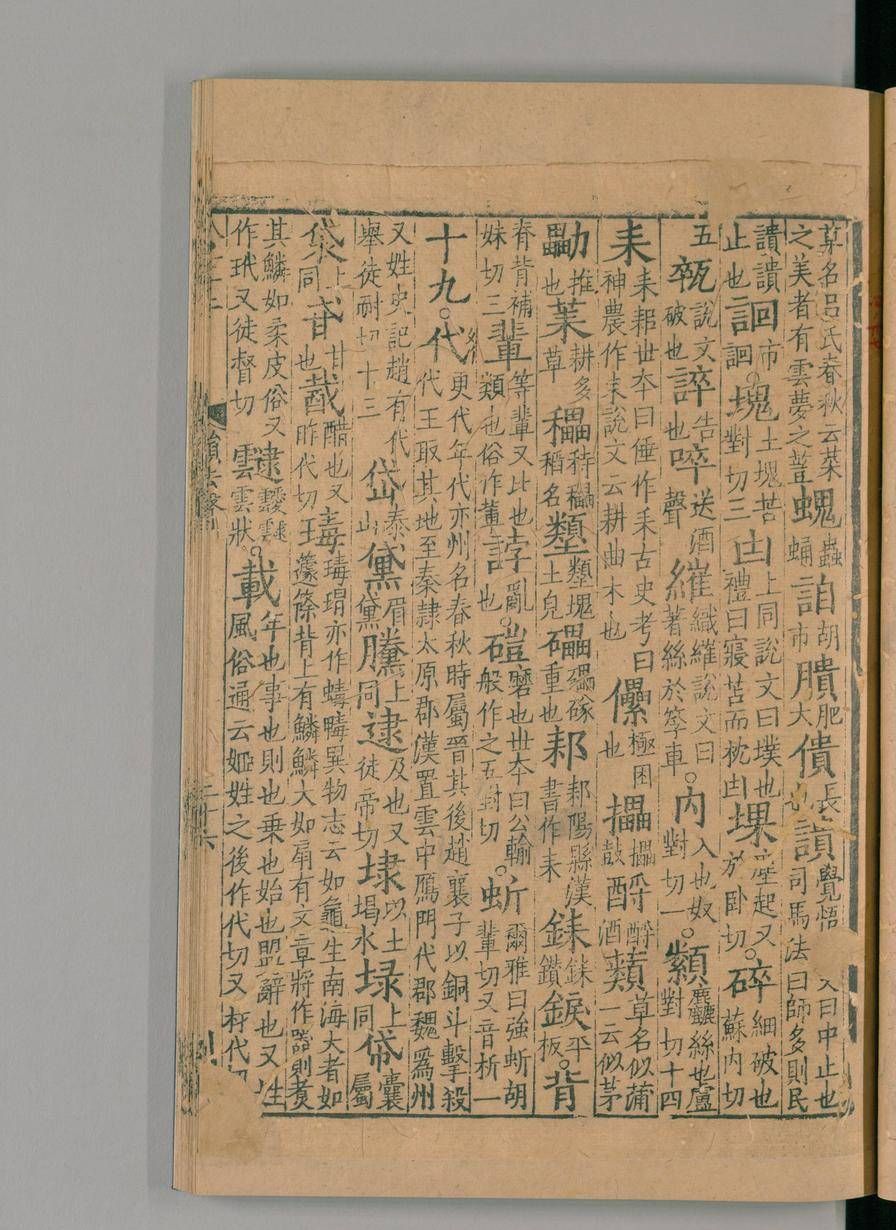 草名呂氏春秋云菜之美者有雲夢之䔇 螝蟲蛹 䛛胡市 膭肥大 僓長也 讃覺悟 司馬法曰師多則民
讃讃止也 詯市詯 塊土塊苦對切三 凷上同說文曰墣也禮曰寢苫而枕凷 堁塵起又於臥切 碎細破也蘇內切
五 㼎說文破也 誶告也 啐送酒聲 繀織繀說文曰著絲於筟車 內入也奴對切一 纇麤絲也盧對切十四
耒耒耜世本曰倕作耒古史考曰神農作耒說文云耕曲木也 儽極困也 攂攂鼓 酹酹酒 蘱草名似蒲一云似茅
勵推也 䒹耕多草 䆀稻名 塁土皃 礧重也 耒耒陽縣漢書作耒 銇銇鑽 錑平板 背
脊背補妹切三 輩等輩又比也類也俗作軰 誖亂也 磑磨也世本曰公輸般作之五對切 蚚爾雅曰強蚚胡輩切又音析一
十九 代更代年代亦州名春秋時屬晉其後趙襄子以銅斗擊殺代王取其地至秦隸太原郡漢置雲中鴈門代郡魏爲州
又姓史記趙有代舉徒耐切十三 岱泰山 黛眉黛 騰上同 逮及也又徒帝切 埭以土堨水 㙑上同 帒囊屬
袋上同 甙甘也 䣭醋也又昨代切 瑇瑇瑁亦作蝳䗯異物志云如龜生南海大者如籧篨背上有鱗鱗大如扇有文章將作器則煑
其鱗如柔皮俗又作玳又徒督切 靆靉靆雲狀 載年也事也則也乘也始也盟辭也又風俗通云姬姓之後作代切又